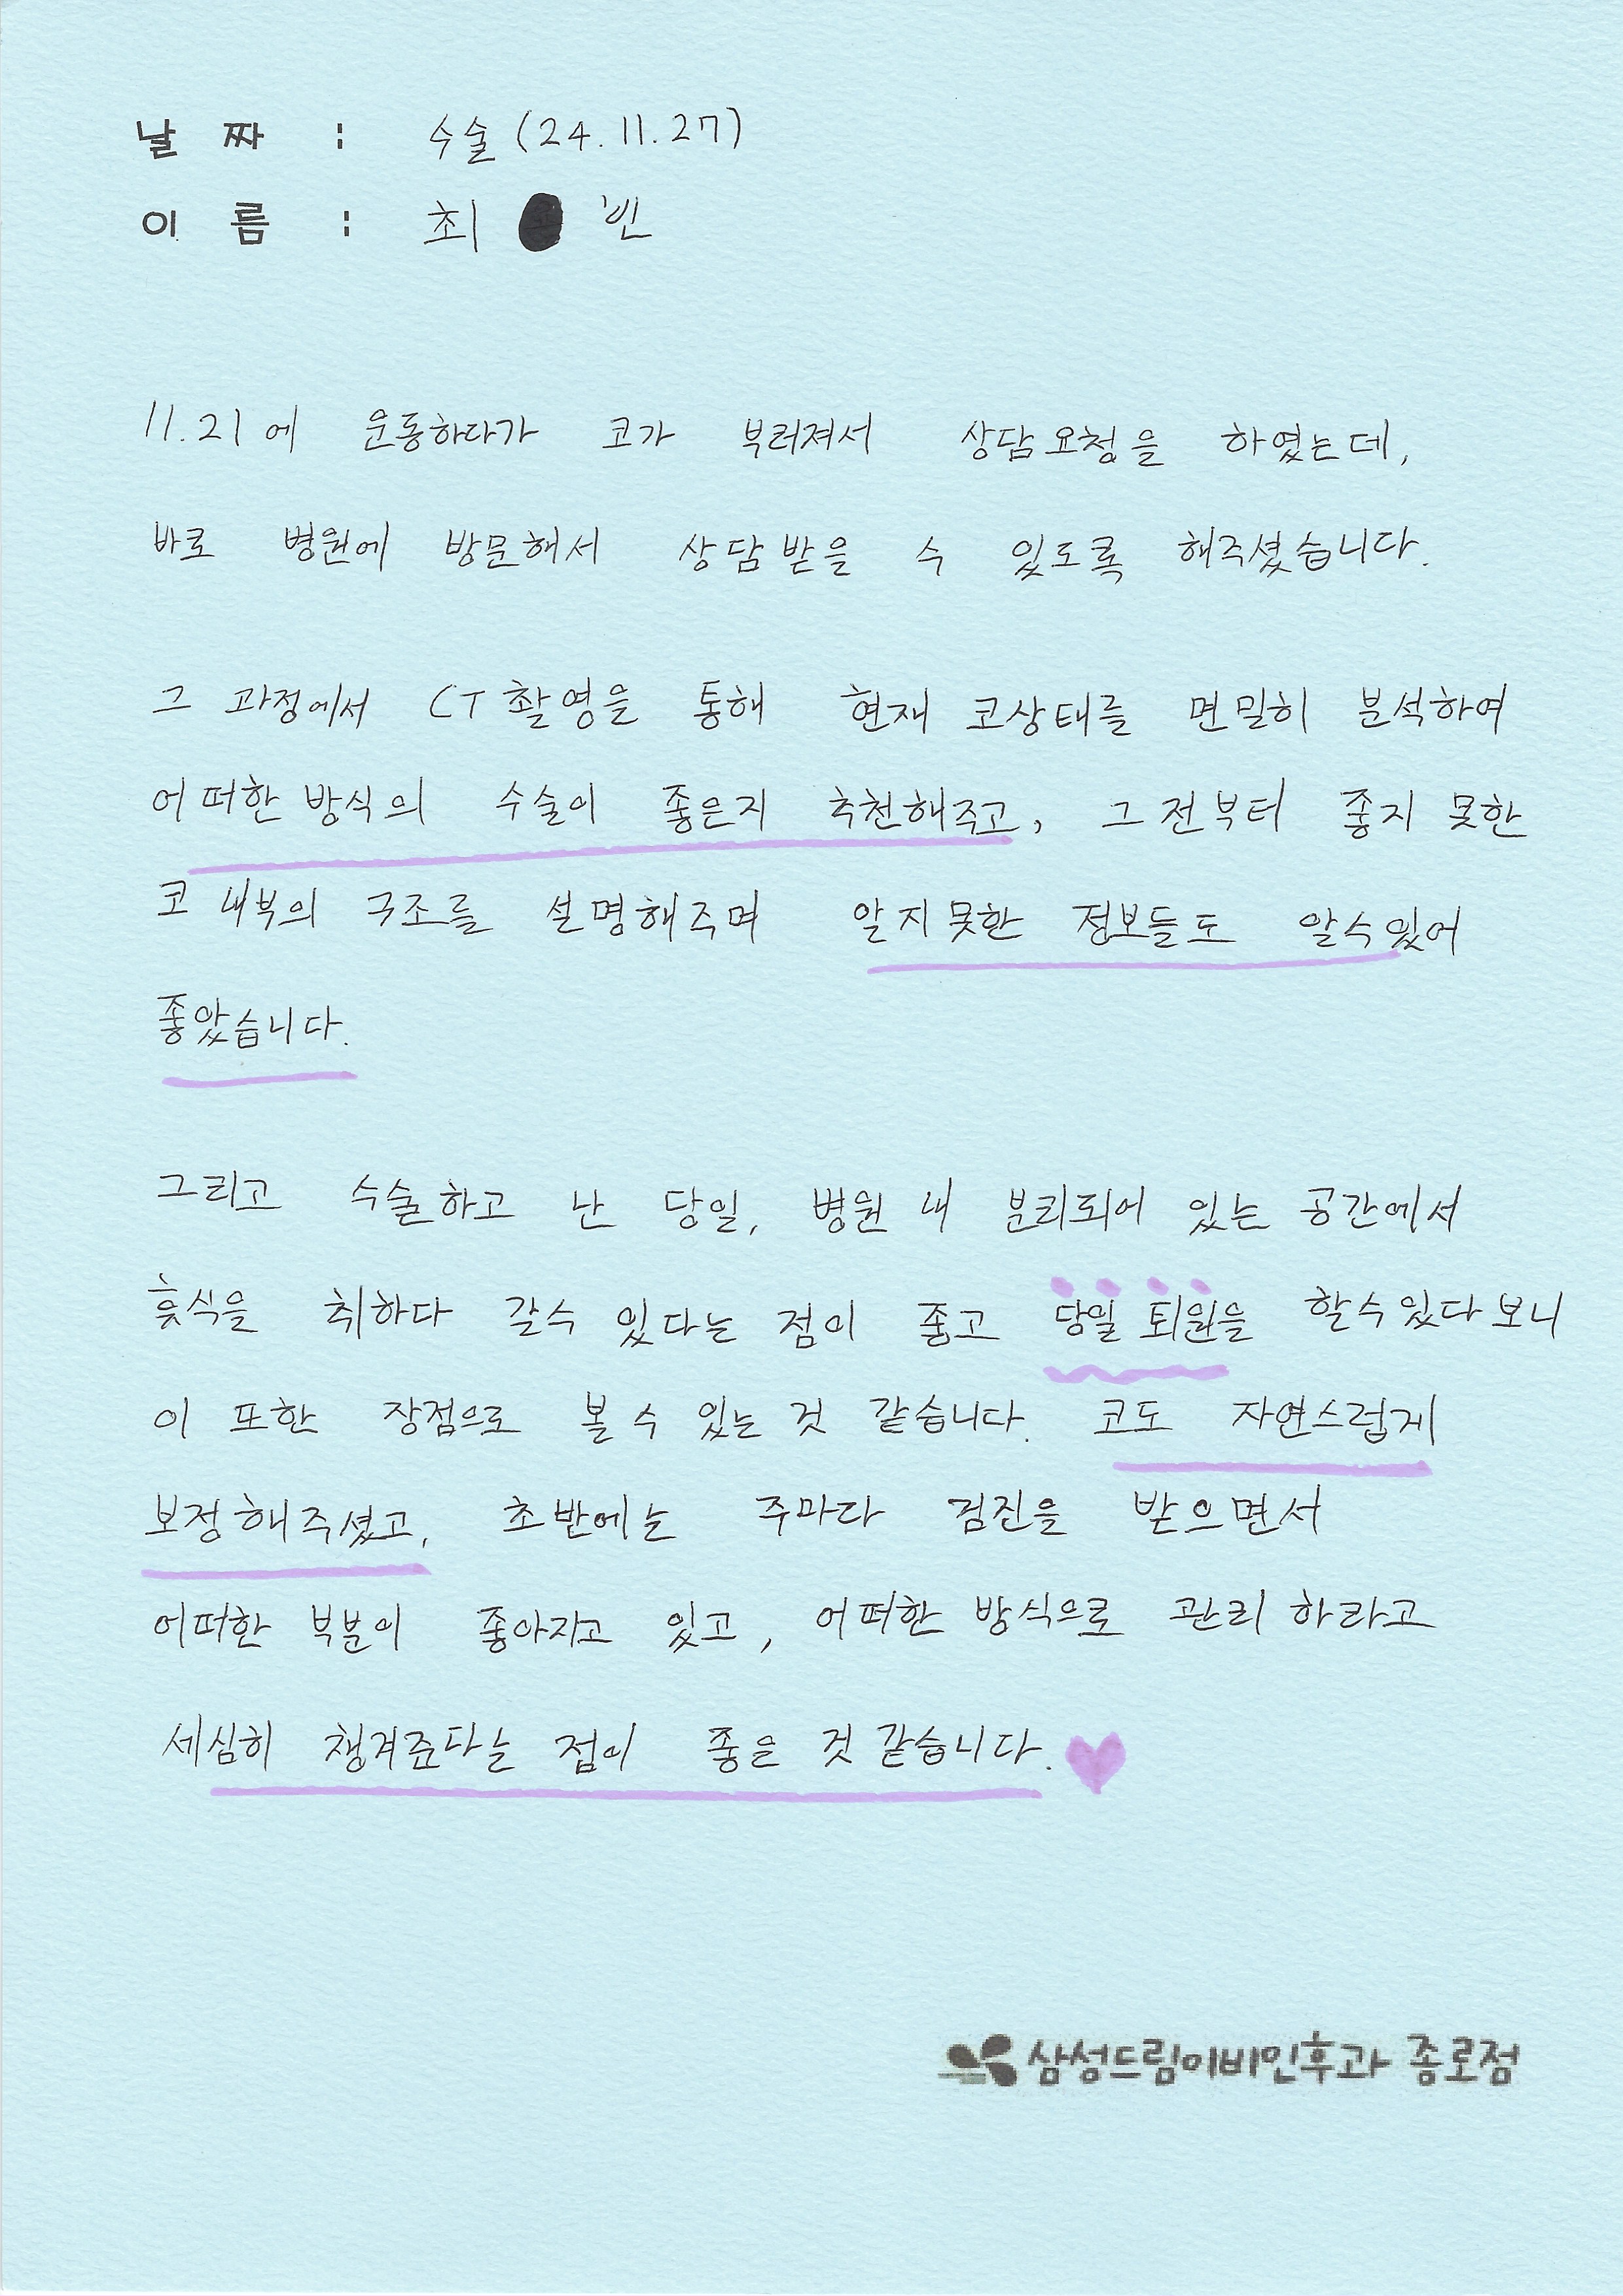 날 짜 : 수술 (24.11.27)
이 름 : 최 빈
11.21에 운동하다가 코가 부러져서 상담요청을 하였는데,
바로 병원에 방문해서 상담받을 수 있도록 해주셨습니다.
그 과정에서 CT촬영을 통해 현재 코상태를 면밀히 분석하여
어떠한 방식의 수술이 좋은지 추천해주고, 그 전부터 좋지 못한
코 내부의 구조를 설명해주며 알지못한 정보들도 알수있어
좋았습니다.
그리고 수술하고 난 당일, 병원 내 분리되어 있는 공간에서
휴식을 취하다 갈수 있다는 점이 좋고 당일 퇴원을 할수있다보니
이 또한 장점으로 볼 수 있는 것 같습니다. 코도 자연스럽게
보정해주셨고, 초반에는 주마다 검진을 받으면서
어떠한 부분이 좋아지고 있고, 어떠한 방식으로 관리하라고
세심히 챙겨준다는 점이 좋은 것 같습니다.
삼성드림이비인후과 종로점